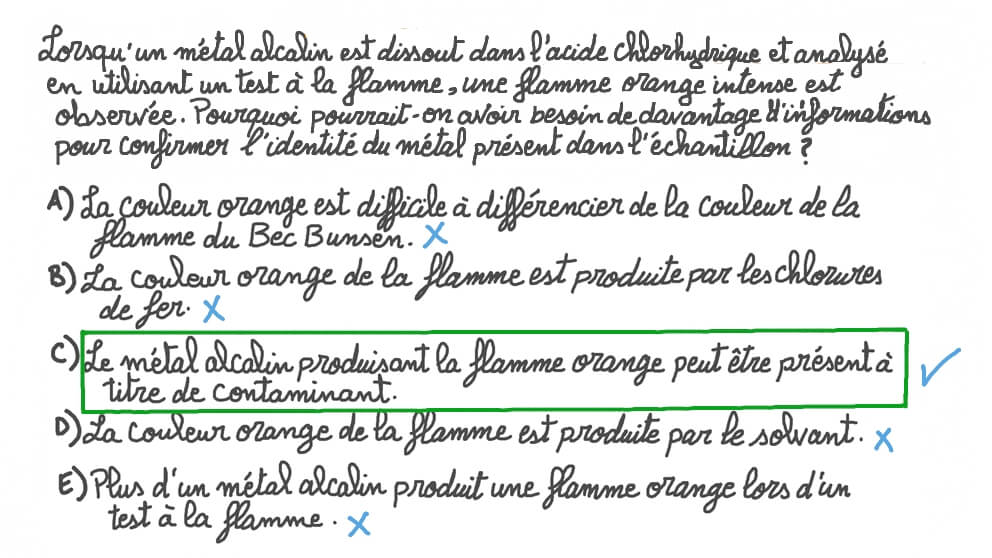 Lorsqu'un métal alcalin est dissout dans l'acide chlorhydrique et analysé
en utilisant un test à la flamme, une flamme orange intense est
observée. Pourquoi pourrait-on avoir besoin de davantage d'informations
pour confirmer l'identité du métal présent dans l'échantillon ?
A) La couleur orange est difficile à différencier de la couleur de la
flamme du Bec Bunsen. X
B) La couleur orange de la flamme est produite par les chlorures
de fer. X
C) Le métal alcalin produisant la flamme orange peut être présent à
titre de contaminant. ✓
D) La couleur orange de la flamme est produite par le solvant. X
E) Plus d'un métal alcalin produit une flamme orange lors d'un
test à la flamme. X